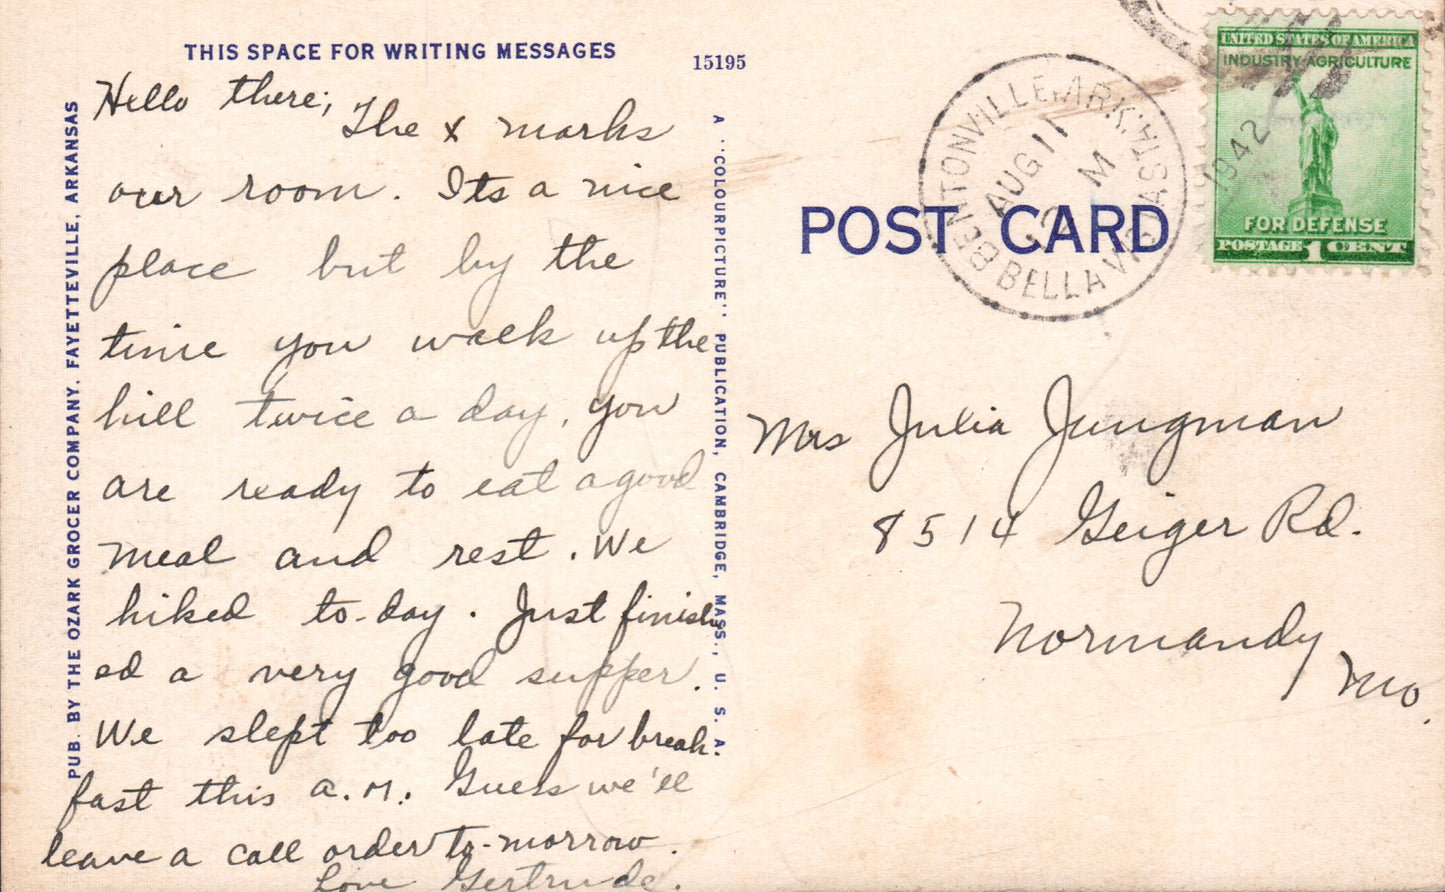 THIS SPACE FOR WRITING MESSAGES
15195
Hello there;
The x marks
our room. Its a nice
place but by the
time you walk up the
hill twice a day, you
are ready to eat a good
meal and rest. We
hiked to-day. Just finish
ed a very good supper.
We slept too late for break-
fast this a.m. Guess we'll
leave a call order to-morrow.
Love Gertrude.
PUB. BY THE OZARK GROCER COMPANY, FAYETTEVILLE, ARKANSAS
A "COLOURPICTURE" PUBLICATION, CAMBRIDGE, MASS., U. S. A.
POST CARD
BENTONVILLE, ARK.
AUG 11
M
1942
BELLA VISTA
UNITED STATES OF AMERICA
INDUSTRY AGRICULTURE
FOR DEFENSE
POSTAGE 1 CENT
Mrs Julia Jungman
8514 Geiger Rd.
Normandy
Mo.